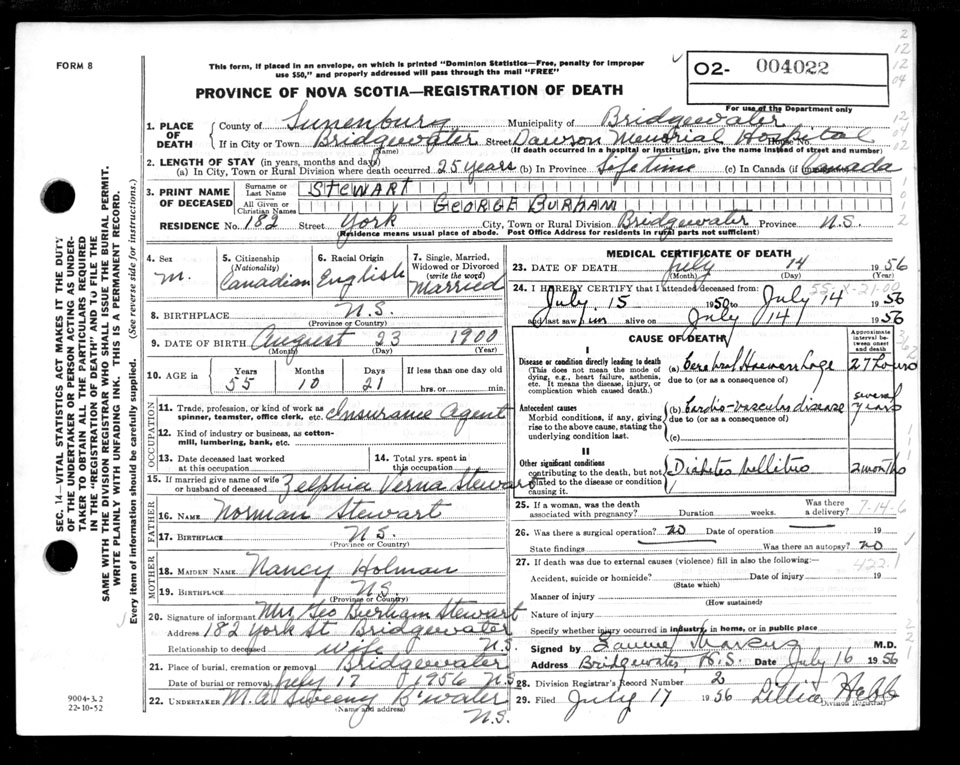 FORM 8
This form, if placed in an envelope, on which is printed "Dominion Statistics—Free, penalty for improper
use $50," and properly addressed will pass through the mail "FREE"
O2- 004022
PROVINCE OF NOVA SCOTIA—REGISTRATION OF DEATH
For use of the Department only
1. PLACE OF DEATH { County of Lunenburg Municipality of Bridgewater
If in City or Town Bridgewater (Name) Street Dawson Memorial Hospital House No.
(If death occurred in a hospital or institution, give the name instead of street and number)
2. LENGTH OF STAY (in years, months and days)
(a) In City, Town or Rural Division where death occurred 25 years (b) In Province Lifetime (c) In Canada (if Canada
3. PRINT NAME OF DECEASED { Surname or Last Name STEWART
All Given or Christian Names GEORGE BURHAM
RESIDENCE No. 182 Street York City, Town or Rural Division Bridgewater Province N.S.
(Residence means usual place of abode. Post Office Address for residents in rural parts not sufficient)
4. Sex M.
5. Citizenship (Nationality) Canadian
6. Racial Origin English
7. Single, Married, Widowed or Divorced (write the word) Married
8. BIRTHPLACE N.S.
(Province or Country)
9. DATE OF BIRTH August 23 1900
(Month) (Day) (Year)
10. AGE in { Years 55 Months 10 Days 21 If less than one day old
hrs. or min.
OCCUPATION
11. Trade, profession, or kind of work as spinner, teamster, office clerk, etc. Insurance Agent
12. Kind of industry or business, as cotton-mill, lumbering, bank, etc.
13. Date deceased last worked at this occupation
14. Total yrs. spent in this occupation
15. If married give name of wife or husband of deceased Zelphia Verna Stewart
FATHER
16. NAME Norman Stewart
17. BIRTHPLACE N.S.
(Province or Country)
MOTHER
18. MAIDEN NAME Nancy Holman
19. BIRTHPLACE N.S.
(Province or Country)
20. Signature of informant Mrs Geo Burham Stewart
Address 182 York St Bridgewater
Relationship to deceased wife N.S.
21. Place of burial, cremation or removal Bridgewater
Date of burial or removal July 17 1956 N.S.
22. UNDERTAKER M.A. Sweeny B'water
(Name and address) N.S.
MEDICAL CERTIFICATE OF DEATH
23. DATE OF DEATH July 14 1956
(Month) (Day) (Year)
24. I HEREBY CERTIFY that I attended deceased from:
July 15 1950 to July 14 1956
and last saw him alive on July 14 1956
CAUSE OF DEATH
Approximate interval between onset and death
I
Disease or condition directly leading to death
(This does not mean the mode of dying, e.g., heart failure, asthenia, etc. It means the disease, injury, or complication which caused death.)
(a) Cerebral Haemorrhage 27 hours
due to (or as a consequence of)
Antecedent causes
Morbid conditions, if any, giving rise to the above cause, stating the underlying condition last.
(b) Cardio-vascular disease several years
due to (or as a consequence of)
(c)
II
Other significant conditions
contributing to the death, but not related to the disease or condition causing it.
Diabetes Mellitus 2 months
25. If a woman, was the death associated with pregnancy? Duration weeks. Was there a delivery?
26. Was there a surgical operation? no Date of operation 19
State findings Was there an autopsy? no
27. If death was due to external causes (violence) fill in also the following:
Accident, suicide or homicide? Date of injury 19
(State which)
Manner of injury
(How sustained)
Nature of injury
Specify whether injury occurred in industry, in home, or in public place
Signed by Marcus M.D.
Address Bridgewater N.S. Date July 16 1956
28. Division Registrar's Record Number 2
29. Filed July 17 1956 Lillia Hebb
(Division Registrar)
SEC. 14—VITAL STATISTICS ACT MAKES IT THE DUTY
OF THE UNDERTAKER OR PERSON ACTING AS UNDER-
TAKER TO OBTAIN ALL THE PARTICULARS REQUIRED
IN THE "REGISTRATION OF DEATH" AND TO FILE THE
SAME WITH THE DIVISION REGISTRAR WHO SHALL ISSUE THE BURIAL PERMIT.
WRITE PLAINLY WITH UNFADING INK. THIS IS A PERMANENT RECORD.
Every item of information should be carefully supplied. (See reverse side for instructions.)
9004-3.2
22-10-52